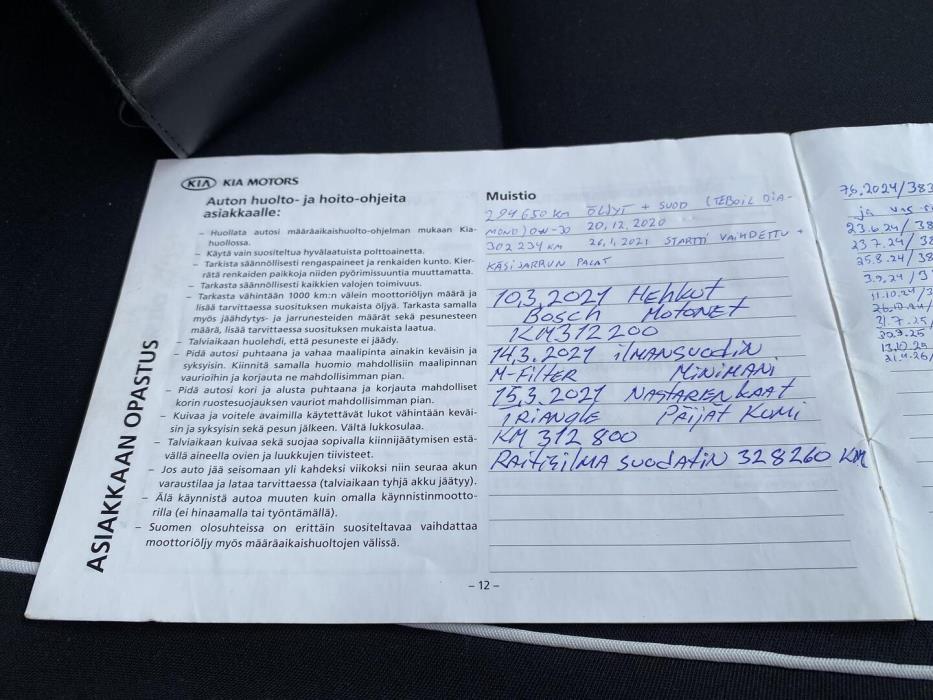 KIA KIA MOTORS
Auton huolto- ja hoito-ohjeita
asiakkaalle:
– Huollata autosi määräaikaishuolto-ohjelman mukaan Kia-
huollossa.
– Käytä vain suositeltua hyvälaatuista polttoainetta.
– Tarkista säännöllisesti rengaspaineet ja renkaiden kunto. Kier-
rätä renkaiden paikkoja niiden pyörimissuuntia muuttamatta.
– Tarkasta säännöllisesti kaikkien valojen toimivuus.
– Tarkasta vähintään 1000 km:n välein moottoriöljyn määrä ja
lisää tarvittaessa suosituksen mukaista öljyä. Tarkasta samalla
myös jäähdytys- ja jarrunesteiden määrät sekä pesunesteen
määrä, lisää tarvittaessa suosituksen mukaista laatua.
– Talviaikaan huolehdi, että pesuneste ei jäädy.
– Pidä autosi puhtaana ja vahaa maalipinta ainakin keväisin ja
syksyisin. Kiinnitä samalla huomio mahdollisiin maalipinnan
vaurioihin ja korjauta ne mahdollisimman pian.
– Pidä autosi kori ja alusta puhtaana ja korjauta mahdolliset
korin ruostesuojauksen vauriot mahdollisimman pian.
– Kuivaa ja voitele avaimilla käytettävät lukot vähintään keväi-
sin ja syksyisin sekä pesun jälkeen. Vältä lukkosulaa.
– Talviaikaan kuivaa sekä suojaa sopivalla kiinnijäätymisen estä-
vällä aineella ovien ja luukkujen tiivisteet.
– Jos auto jää seisomaan yli kahdeksi viikoksi niin seuraa akun
varaustilaa ja lataa tarvittaessa (talviaikaan tyhjä akku jäätyy).
– Älä käynnistä autoa muuten kuin omalla käynnistinmootto-
rilla (ei hinaamalla tai työntämällä).
– Suomen olosuhteissa on erittäin suositeltavaa vaihdattaa
moottoriöljy myös määräaikaishuoltojen välissä.
ASIAKKAAN OPASTUS
Muistio
294650 KM ÖLJYT + SUOD (TEBOIL DIA-
MOND) 0W-30 20.12.2020
302234 KM 26.1.2021 STARTTI VAIHDETTU +
KÄSIJARRUN PALAT
10.3.2021 HEHKUT
BOSCH MOTONET
KM 312200
14.3.2021 ILMANSUODIN
M-FILTER MINIMANI
15.3.2021 NASTARENKAAT
TRIANGLE PÄIJÄT KUMI
KM 312 800
RAITISILMA SUODATIN 328260 KM
– 12 –
7.5.2024/383
ja
23.6.24/38
23.7.24/
25.8.24/38
3.9.24/3
11.10.24/3
21.7.25/
30.9.25
13.10.25